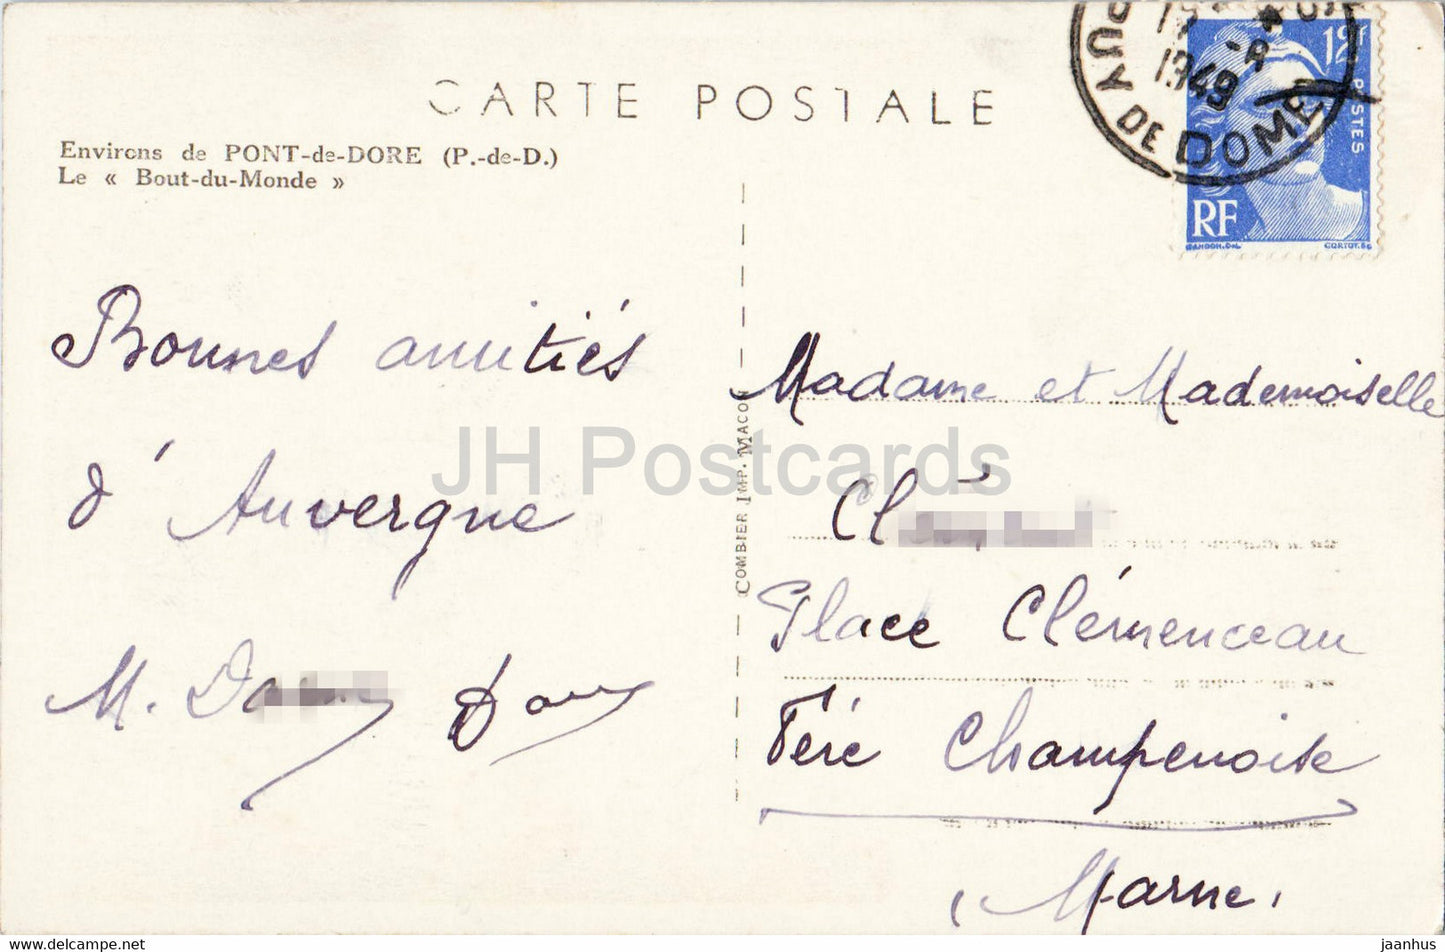 CARTE POSTALE
Environs de PONT-de-DORE (P.-de-D.)
Le « Bout-du-Monde »
1949
PUY DE DOME
12f
POSTES
RF
GANDON.DEL
CORTOT.SC
Bonnes amitiés
d'Auvergne
M.
COMBIER IMP. MACON
Madame et Mademoiselle
Place Clémenceau
Fère Champenoise
(Marne)
JH Postcards
jaanhus / delcampe.net
www.delcampe.net